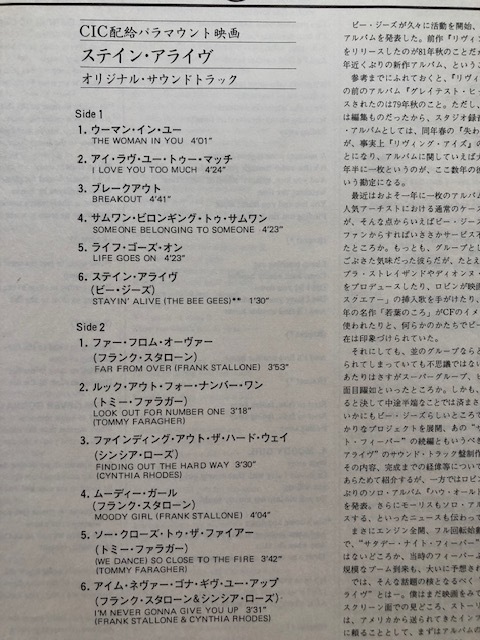 CIC配給パラマウント映画
ステイン・アライヴ
オリジナル・サウンドトラック
Side 1
1. ウーマン・イン・ユー
THE WOMAN IN YOU 4'01"
2. アイ・ラヴ・ユー・トゥー・マッチ
I LOVE YOU TOO MUCH 4'24"
3. ブレークアウト
BREAKOUT 4'41"
4. サムワン・ビロンギング・トゥ・サムワン
SOMEONE BELONGING TO SOMEONE 4'23"
5. ライフ・ゴーズ・オン
LIFE GOES ON 4'23"
6. ステイン・アライヴ
(ビー・ジーズ)
STAYIN' ALIVE (THE BEE GEES)** 1'30"
Side 2
1. ファー・フロム・オーヴァー
(フランク・スタローン)
FAR FROM OVER (FRANK STALLONE) 3'53"
2. ルック・アウト・フォー・ナンバー・ワン
(トミー・ファラガー)
LOOK OUT FOR NUMBER ONE 3'18"
(TOMMY FARAGHER)
3. ファインディング・アウト・ザ・ハード・ウェイ
(シンシア・ローズ)
FINDING OUT THE HARD WAY 3'30"
(CYNTHIA RHODES)
4. ムーディー・ガール
(フランク・スタローン)
MOODY GIRL (FRANK STALLONE) 4'04"
5. ソー・クローズ・トゥ・ザ・ファイアー
(トミー・ファラガー)
(WE DANCE) SO CLOSE TO THE FIRE 3'42"
(TOMMY FARAGHER)
6. アイム・ネヴァー・ゴナ・ギヴ・ユー・アップ
(フランク・スタローン&シンシア・ローズ)
I'M NEVER GONNA GIVE YOU UP 3'31"
(FRANK STALLONE & CYNTHIA RHODES)
ビー・ジーズが久々に活動を開始、
アルバムを発表した。前作『リヴィン
をリリースしたのが81年秋のことだか
年近くぶりの新作アルバム、というこ
参考までにふれておくと、『リヴィ
の前のアルバム『グレイテスト・ヒッ
スされたのは79年秋のこと。ただし、
は編集ものだったから、スタジオ録音
・アルバムとしては、同年春の『失わ
が、事実上『リヴィング・アイズ』の
とになり、アルバムに関していえば大
年半に一枚というのが、ここ数年の彼
いう勘定になる。
最近はおよそ一年に一枚のアルバム
人気アーチストにおける通常のケース
が、そんな点からいえばビー・ジーズ
ファンからすればいささかサービス不
たところか。もっとも、グループとし
ごぶさた気味だった彼らだが、たとえ
ブラ・ストライザンドやディオンヌ・
をプロデュースしたり、ロビンが映画
スクエアー』の挿入歌を手がけたり、
年の名作「若葉のころ」がCFのイメ
使われたりと、何らかのかたちでビー
在は印象づけられていた。
それにしても、並のグループならと
られてしまっていても不思議ではない
あたりはさすがスーパーグループ、ビ
面目躍如といったところか。しかも、
ると決して中途半端なことでは済まさ
いかにもビー・ジーズらしいところで
かりなプロジェクトを展開、あの"サ
ト・フィーバー"の続編ともいうべき
アライヴ』のサウンド・トラック盤制作
その内容、完成までの経緯等について
あらためて紹介するが、一方ではロビン
ぶりのソロ・アルバム『ハウ・オールド
を発表。さらにモーリスもソロ・アル
スする、といったニュースも伝わって
まさにエンジン全開、フル回転始動
で、"サタデー・ナイト・フィーバー"
はないどころか、当時のフィーバーぶ
規模なブーム到来も、大いに予想され
では、そんな話題の核となるべく『
ライヴ』とは――。僕はまだ映画をみて
スクリーン面での見どころ、ストーリ
は、アメリカから送られてきたインフ
に頼るとして、まずはアルバムの